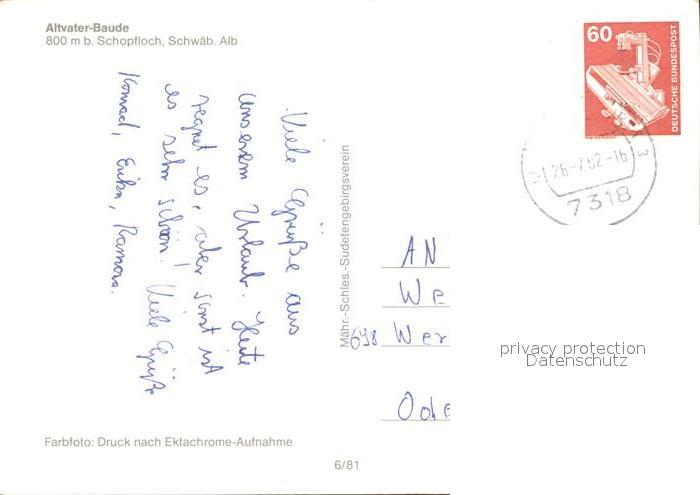 Altvater-Baude
800 m b. Schopfloch, Schwäb. Alb
Viele Grüße aus
unserem Urlaub. Heute
regnet es, aber sonst ist
es sehr schön! Viele Grüße
Konrad, Erika, Ramona.
Mähr.-Schles.-Sudetengebirgsverein
60
DEUTSCHE BUNDESPOST
26-7.82-16
7318
AN
We
698 Wer
Ode
privacy protection
Datenschutz
Farbfoto: Druck nach Ektachrome-Aufnahme
6/81